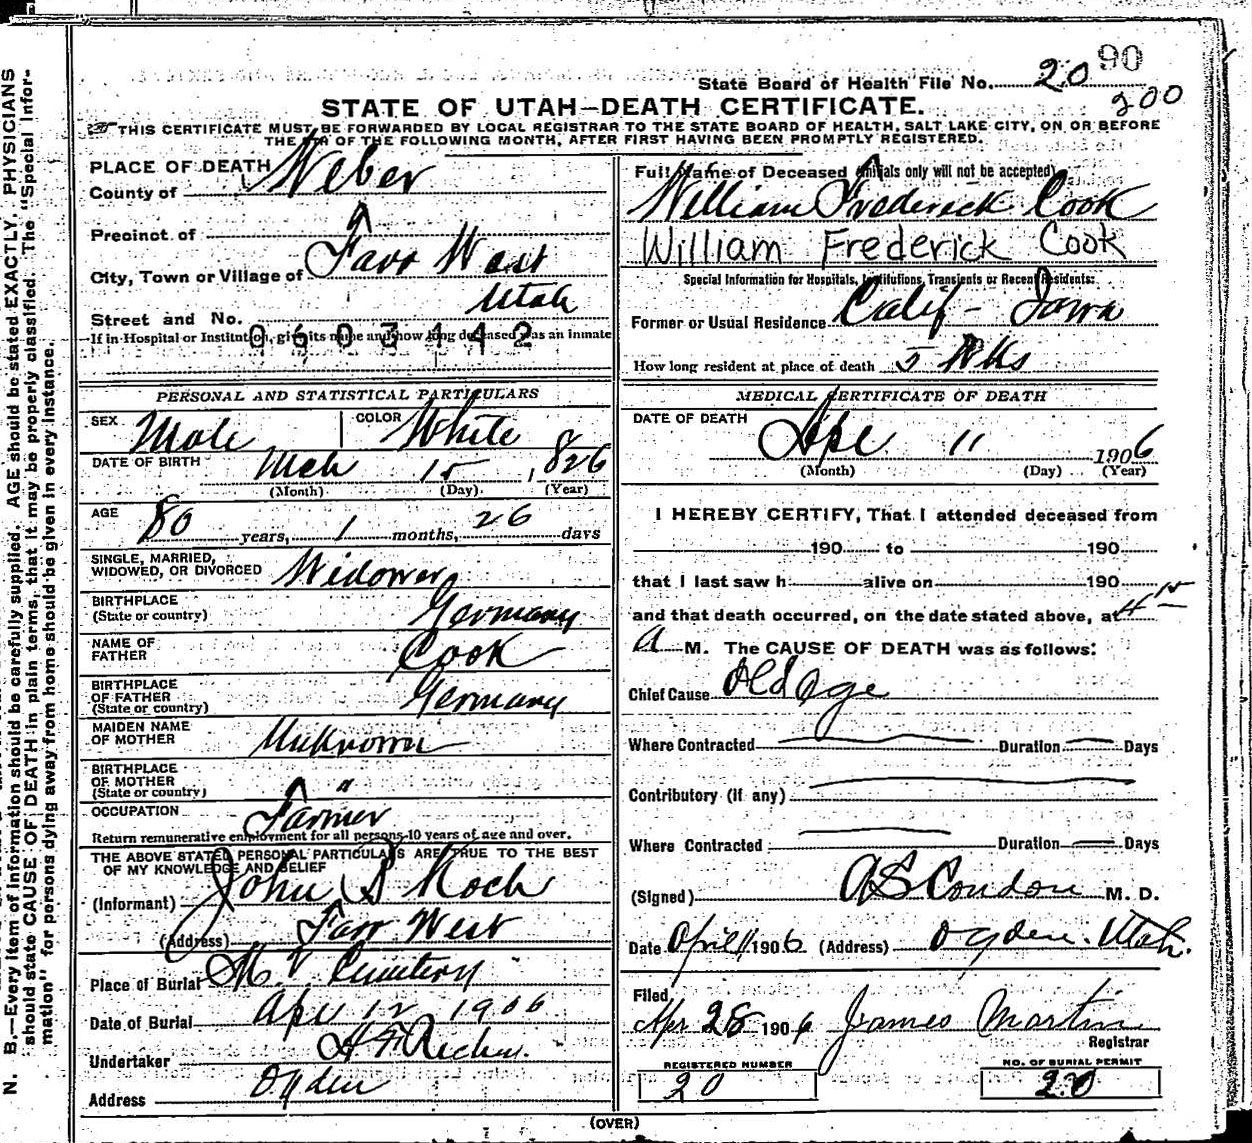 90
State Board of Health File No. 20
200
STATE OF UTAH—DEATH CERTIFICATE.
THIS CERTIFICATE MUST BE FORWARDED BY LOCAL REGISTRAR TO THE STATE BOARD OF HEALTH, SALT LAKE CITY, ON OR BEFORE
THE OF THE FOLLOWING MONTH, AFTER FIRST HAVING BEEN PROMPTLY REGISTERED.
N. B.—Every item of information should be carefully supplied. AGE should be stated EXACTLY. PHYSICIANS
should state CAUSE OF DEATH in plain terms, that it may be properly classified. The "Special Infor-
mation" for persons dying away from home should be given in every instance.
PLACE OF DEATH
County of Weber
Precinct of
City, Town or Village of Farr West
Utah
Street and No.
If in Hospital or Institution, give its name and how long deceased was an inmate
0603442
PERSONAL AND STATISTICAL PARTICULARS
SEX Male COLOR White
DATE OF BIRTH Mch 15, 1826
(Month) (Day) (Year)
AGE 80 years, 1 months, 26 days
SINGLE, MARRIED,
WIDOWED, OR DIVORCED Widower
BIRTHPLACE
(State or country) Germany
NAME OF
FATHER Cook
BIRTHPLACE
OF FATHER
(State or country) Germany
MAIDEN NAME
OF MOTHER Unknown
BIRTHPLACE
OF MOTHER
(State or country) "
OCCUPATION Farmer
Return remunerative employment for all persons 10 years of age and over.
THE ABOVE STATED PERSONAL PARTICULARS ARE TRUE TO THE BEST
OF MY KNOWLEDGE AND BELIEF
(Informant) John S Koch
(Address) Farr West
Place of Burial M. V Cemetery
Date of Burial Apr 12 1906
Undertaker
Address Ogden
Full Name of Deceased (Initials only will not be accepted)
William Frederick Cook
William Frederick Cook
Special Information for Hospitals, Institutions, Transients or Recent Residents:
Former or Usual Residence Calif - Iowa
How long resident at place of death 5 Wks
MEDICAL CERTIFICATE OF DEATH
DATE OF DEATH Apr. 11 1906
(Month) (Day) (Year)
I HEREBY CERTIFY, That I attended deceased from
190 to 190
that I last saw h alive on 190
and that death occurred, on the date stated above, at 4 15
A M. The CAUSE OF DEATH was as follows:
Chief Cause Old age
Where Contracted Duration Days
Contributory (if any)
Where Contracted Duration Days
(Signed) A S Condon M. D.
Date April 11 1906 (Address) Ogden. Utah.
Filed
Apr 28 1906 James Martin
Registrar
REGISTERED NUMBER
20
NO. OF BURIAL PERMIT
20
(OVER)